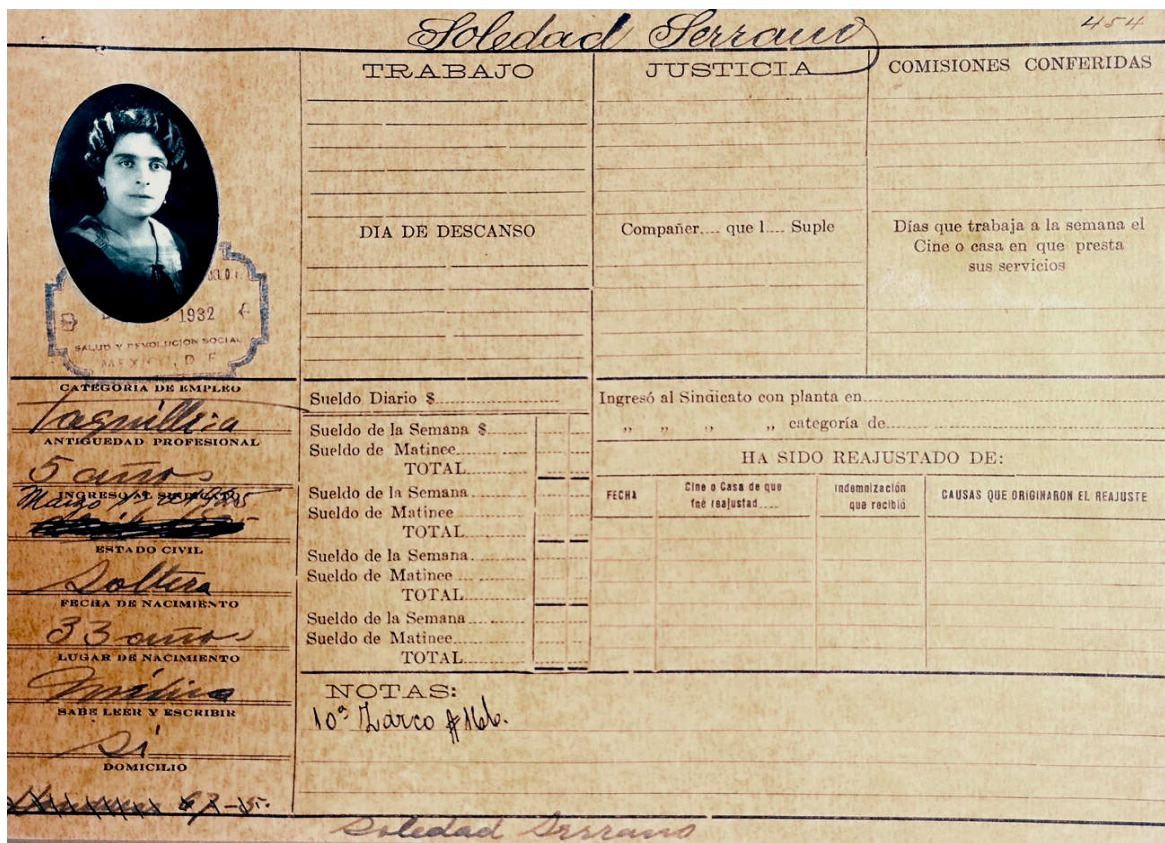 Soledad Serrano
454
TRABAJO
JUSTICIA
COMISIONES CONFERIDAS
DIA DE DESCANSO
Compañer.... que l.... Suple
Días que trabaja a la semana el
Cine o casa en que presta
sus servicios
1932
SALUD Y REVOLUCION SOCIAL
MEXICO, D. F.
CATEGORIA DE EMPLEO
Taquillera
ANTIGUEDAD PROFESIONAL
5 años
INGRESO AL SINDICATO
Marzo 1925
ESTADO CIVIL
Soltera
FECHA DE NACIMIENTO
33 años
LUGAR DE NACIMIENTO
SABE LEER Y ESCRIBIR
Si
DOMICILIO
Sueldo Diario $
Sueldo de la Semana $
Sueldo de Matinee
TOTAL
Sueldo de la Semana
Sueldo de Matinee
TOTAL
Sueldo de la Semana
Sueldo de Matinee
TOTAL
Sueldo de la Semana
Sueldo de Matinee
TOTAL
Ingresó al Sindicato con planta en
„ „ „ „ categoría de
HA SIDO REAJUSTADO DE:
FECHA
Cine o Casa de que
fué reajustad.....
Indemnización
que recibió
CAUSAS QUE ORIGINARON EL REAJUSTE
NOTAS:
10ª Zarco #166.
Soledad Serrano